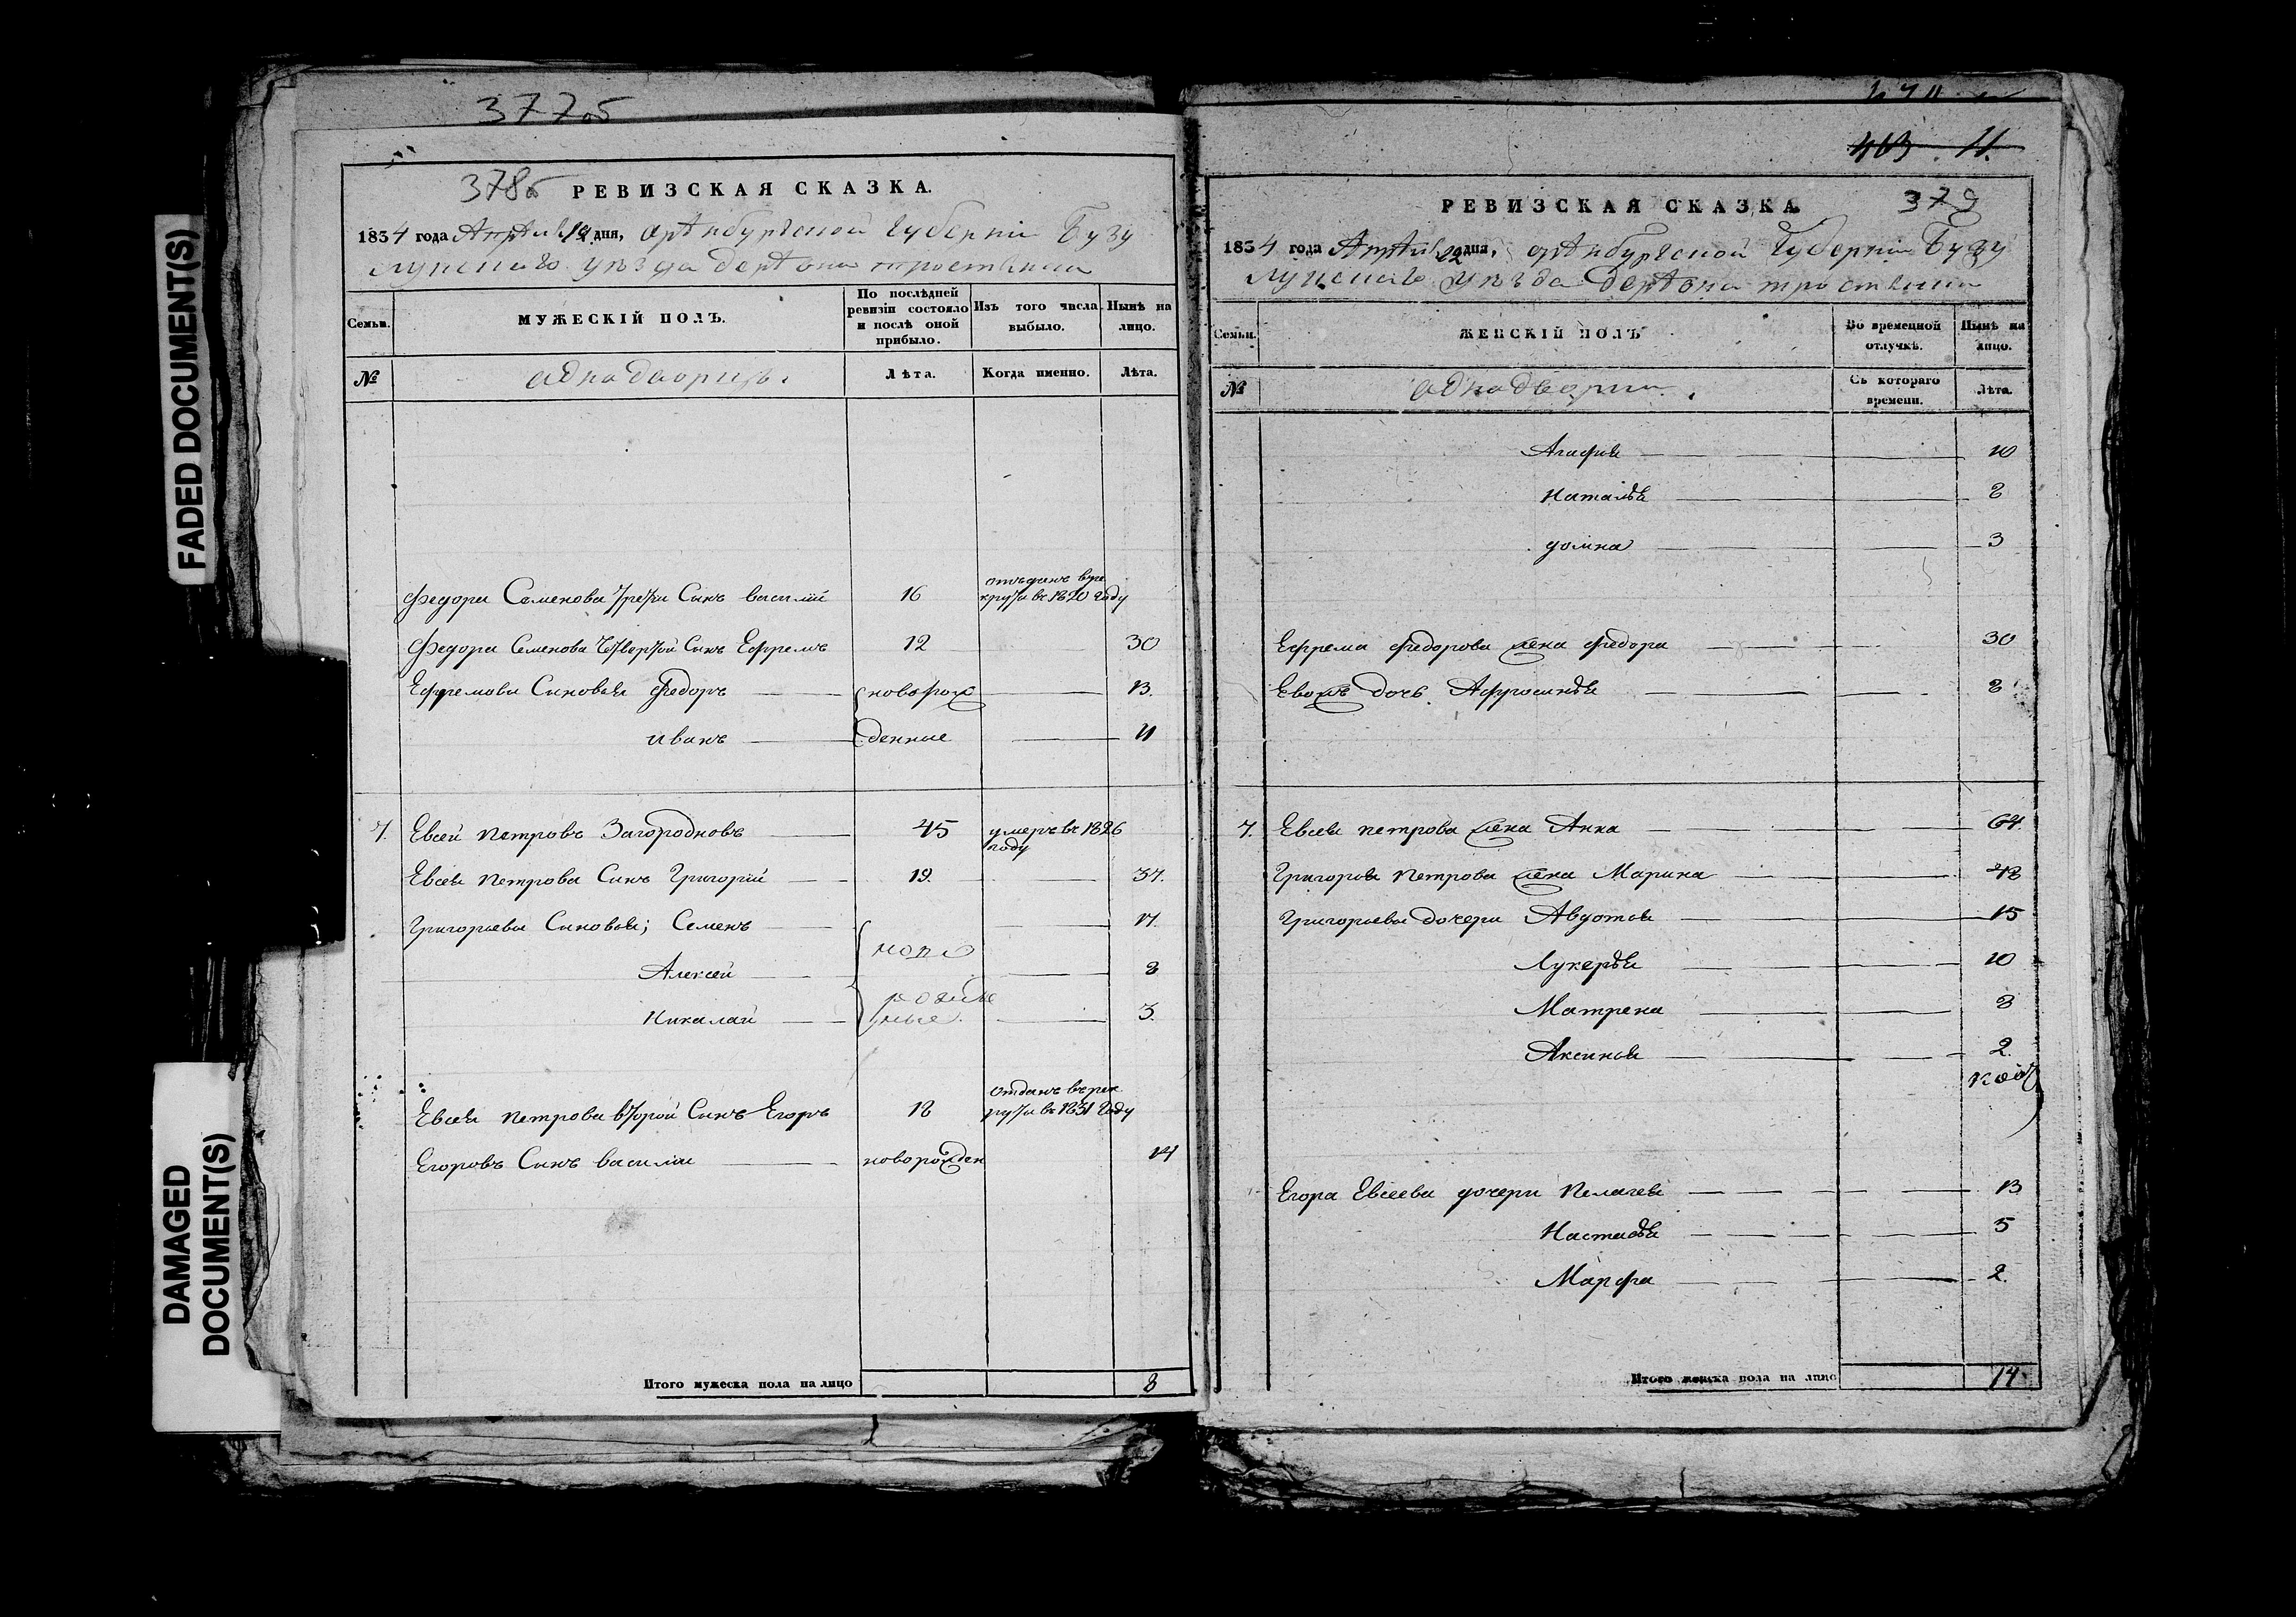 377об
378об РЕВИЗСКАЯ СКАЗКА.
1834 года Апреля 12 дня, аренбургской Губернии Бузу
лупскаго уезда деревни тростянки
Семьи. МУЖЕСКІЙ ПОЛЪ. По послѣдней ревизіи состояло и послѣ оной прибыло. Изъ того числа выбыло. Нынѣ на лицо.
№ аднадворцы. Лѣта. Когда именно. Лѣта.
Федора Семенова третей Сынъ василий 16 отъданъ в ре
круты въ 1820 году
Федора Семенова Четвертой Сынъ Ефремъ 12 30
Ефремовы Сыновья федоръ новорож 13.
иванъ денные 11
7. Евсей петровъ Загородновъ 45 умеръ въ 1826
году
Евсея петрова Сынъ Григорий 19. 37.
Григорьевы Сыновья; Семенъ 17.
Алексей 8
Николай 3.
Евсея петрова второй Сынъ Егоръ 18 отданъ въ рек
руты въ 1831 году
Егоровъ Сынъ василии новорожден 14
Итого мужеска пола на лицо 8
FADED DOCUMENT(S)
DAMAGED
DOCUMENT(S)
РЕВИЗСКАЯ СКАЗКА 379
1834 года Апреля 12 дня, аренбургской Губернии Бузу
лупскаго уезда деревни тростянки
Семьи. ЖЕНСКІЙ ПОЛЪ Во временной отлучкѣ. Нынѣ на лицо.
№ аднадворцы. Съ котораго времени. Лѣта.
Агафья 10
Наталья 8
домна 3
Ефрема федорова жена федора 30
Евожъ дочь Афросинья 8
7. Евсея петрова жена Анна 64.
Григорья петрова жена Марина 48
Григорьевы дочери Авдотья 15
Лукерья 10
Матрена 8
Аксинья 2.
Егора Евсеева дочери Пелагея 13
Настасья 5
Марфа 2.
Итого женска пола на лицо 14